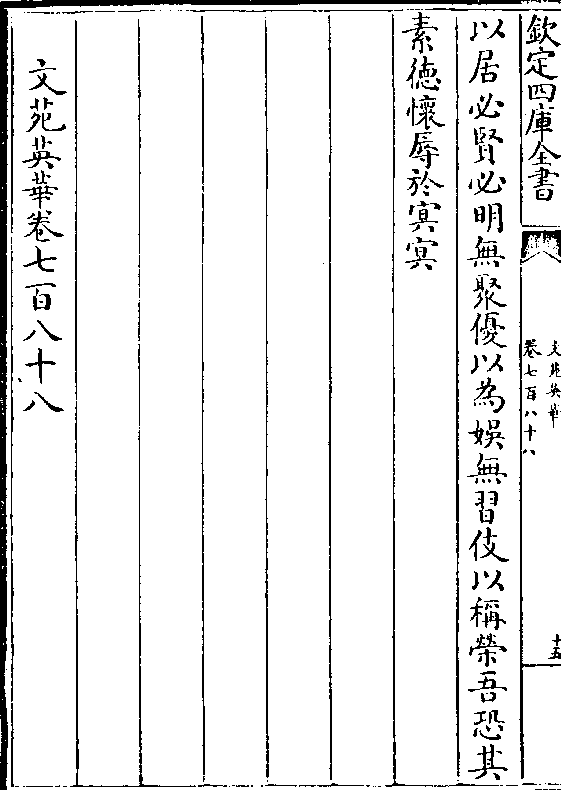 欽定四庫全書
文苑英華
卷七百八十八
十五
以居必賢必明無聚優以為娛無習伎以稱榮吾恐其
素徳懷辱於冥冥
文苑英華卷七百八十八